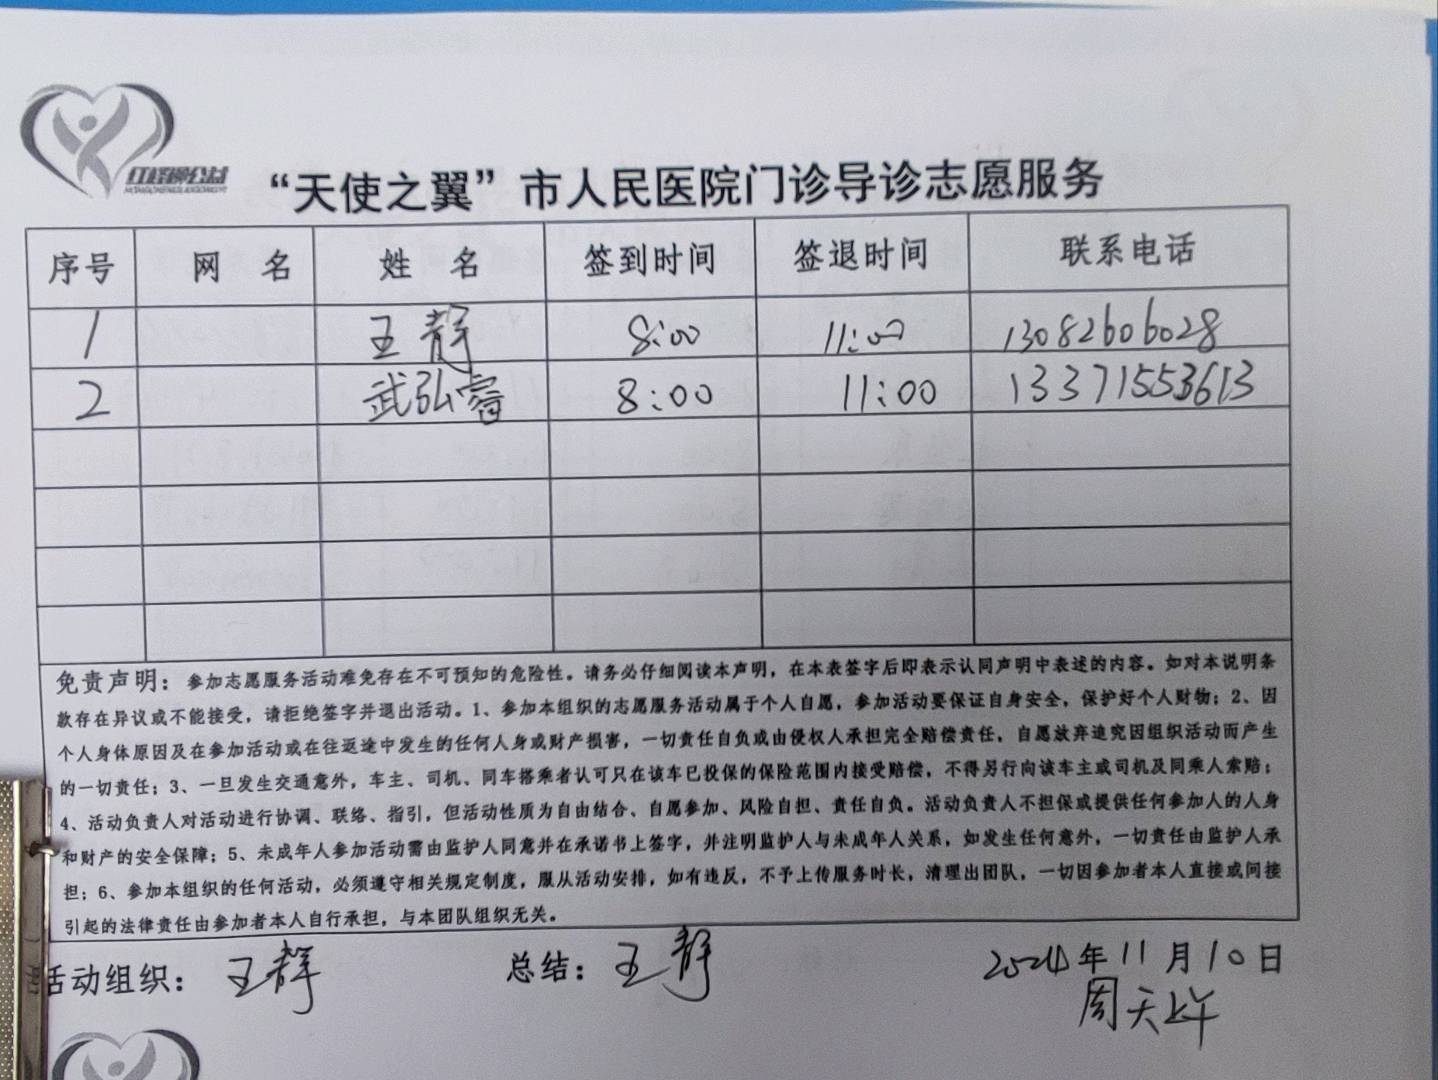 红峰柳公益
“天使之翼”市人民医院门诊导诊志愿服务
序号 网 名 姓 名 签到时间 签退时间 联系电话
1 王静 8:00 11:00 13082606028
2 武弘睿 8:00 11:00 13371553613
免责声明：参加志愿服务活动难免存在不可预知的危险性。请务必仔细阅读本声明，在本表签字后即表示认同声明中表述的内容。如对本说明条
款存在异议或不能接受，请拒绝签字并退出活动。1、参加本组织的志愿服务活动属于个人自愿，参加活动要保证自身安全，保护好个人财物；2、因
个人身体原因及在参加活动或在往返途中发生的任何人身或财产损害，一切责任自负或由侵权人承担完全赔偿责任，自愿放弃追究因组织活动而产生
的一切责任；3、一旦发生交通意外，车主、司机、同车搭乘者认可只在该车已投保的保险范围内接受赔偿，不得另行向该车主或司机及同乘人索赔；
4、活动负责人对活动进行协调、联络、指引，但活动性质为自由结合、自愿参加、风险自担、责任自负。活动负责人不担保或提供任何参加人的人身
和财产的安全保障；5、未成年人参加活动需由监护人同意并在承诺书上签字，并注明监护人与未成年人关系，如发生任何意外，一切责任由监护人承
担；6、参加本组织的任何活动，必须遵守相关规定制度，服从活动安排，如有违反，不予上传服务时长，清理出团队，一切因参加者本人直接或间接
引起的法律责任由参加者本人自行承担，与本团队组织无关。
活动组织：王静 总结：王静 2024年11月10日
周天上午